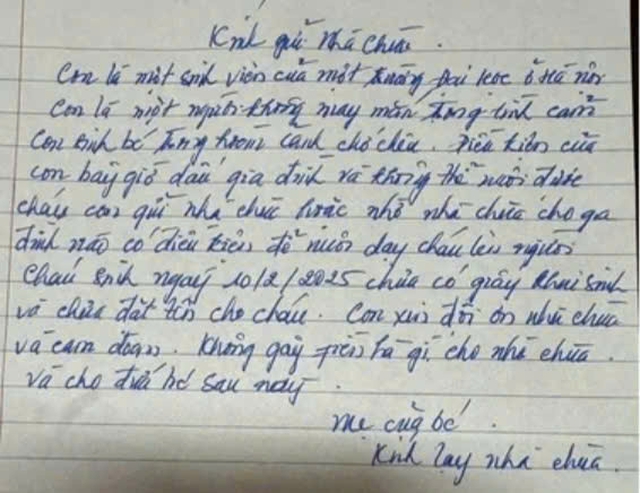 Kính gửi Nhà Chùa.
Con là một sinh viên của một trường Đại học ở Hà nội
Con là một người không may mắn trong tình cảm
Con sinh bé trong hoàn cảnh chớ chêu. Điều kiện của
con bây giờ dấu gia đình và không thể nuôi được
cháu con gửi nhà chùa hoặc nhờ nhà chùa cho gia
đình nào có điều kiện để nuôi dạy cháu lên người
Cháu sinh ngày 10/2/2025 chưa có giấy khai sinh
và chưa đặt tên cho cháu. Con xin đội ơn nhà chùa
và cam đoan. Không gây phiền hà gì cho nhà chùa.
và cho đứa bé sau này.
Mẹ của bé.
Kính lạy nhà chùa.